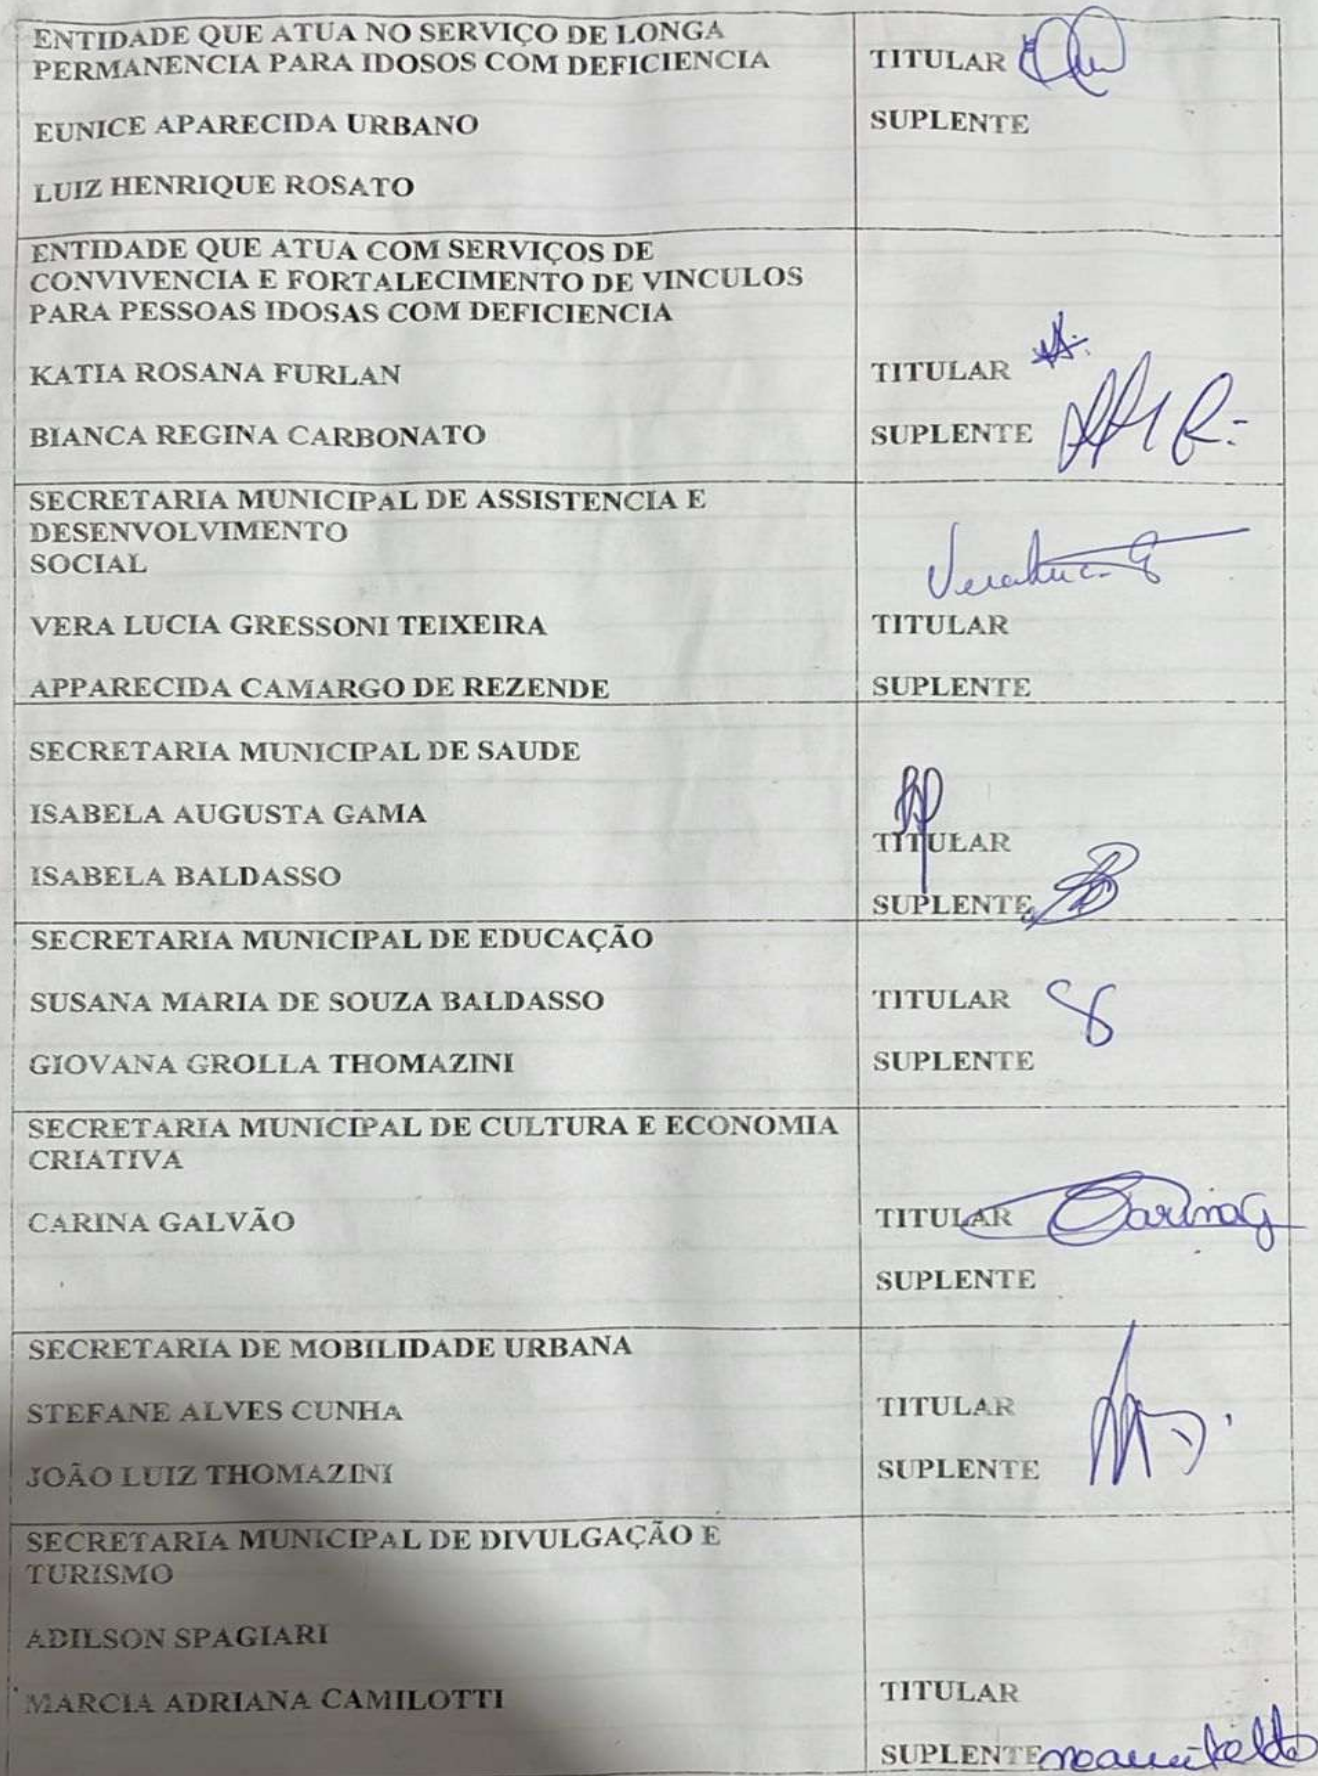 ENTIDADE QUE ATUA NO SERVIÇO DE LONGA
PERMANENCIA PARA IDOSOS COM DEFICIENCIA
TITULAR
EUNICE APARECIDA URBANO
SUPLENTE
LUIZ HENRIQUE ROSATO
ENTIDADE QUE ATUA COM SERVIÇOS DE
CONVIVENCIA E FORTALECIMENTO DE VINCULOS
PARA PESSOAS IDOSAS COM DEFICIENCIA
KATIA ROSANA FURLAN
TITULAR
BIANCA REGINA CARBONATO
SUPLENTE
SECRETARIA MUNICIPAL DE ASSISTENCIA E
DESENVOLVIMENTO
SOCIAL
VERA LUCIA GRESSONI TEIXEIRA
TITULAR
APPARECIDA CAMARGO DE REZENDE
SUPLENTE
SECRETARIA MUNICIPAL DE SAUDE
ISABELA AUGUSTA GAMA
TITULAR
ISABELA BALDASSO
SUPLENTE
SECRETARIA MUNICIPAL DE EDUCAÇÃO
SUSANA MARIA DE SOUZA BALDASSO
TITULAR
GIOVANA GROLLA THOMAZINI
SUPLENTE
SECRETARIA MUNICIPAL DE CULTURA E ECONOMIA
CRIATIVA
CARINA GALVÃO
TITULAR CarinaG
SUPLENTE
SECRETARIA DE MOBILIDADE URBANA
STEFANE ALVES CUNHA
TITULAR
JOÃO LUIZ THOMAZINI
SUPLENTE
SECRETARIA MUNICIPAL DE DIVULGAÇÃO E
TURISMO
ADILSON SPAGIARI
MARCIA ADRIANA CAMILOTTI
TITULAR
SUPLENTE